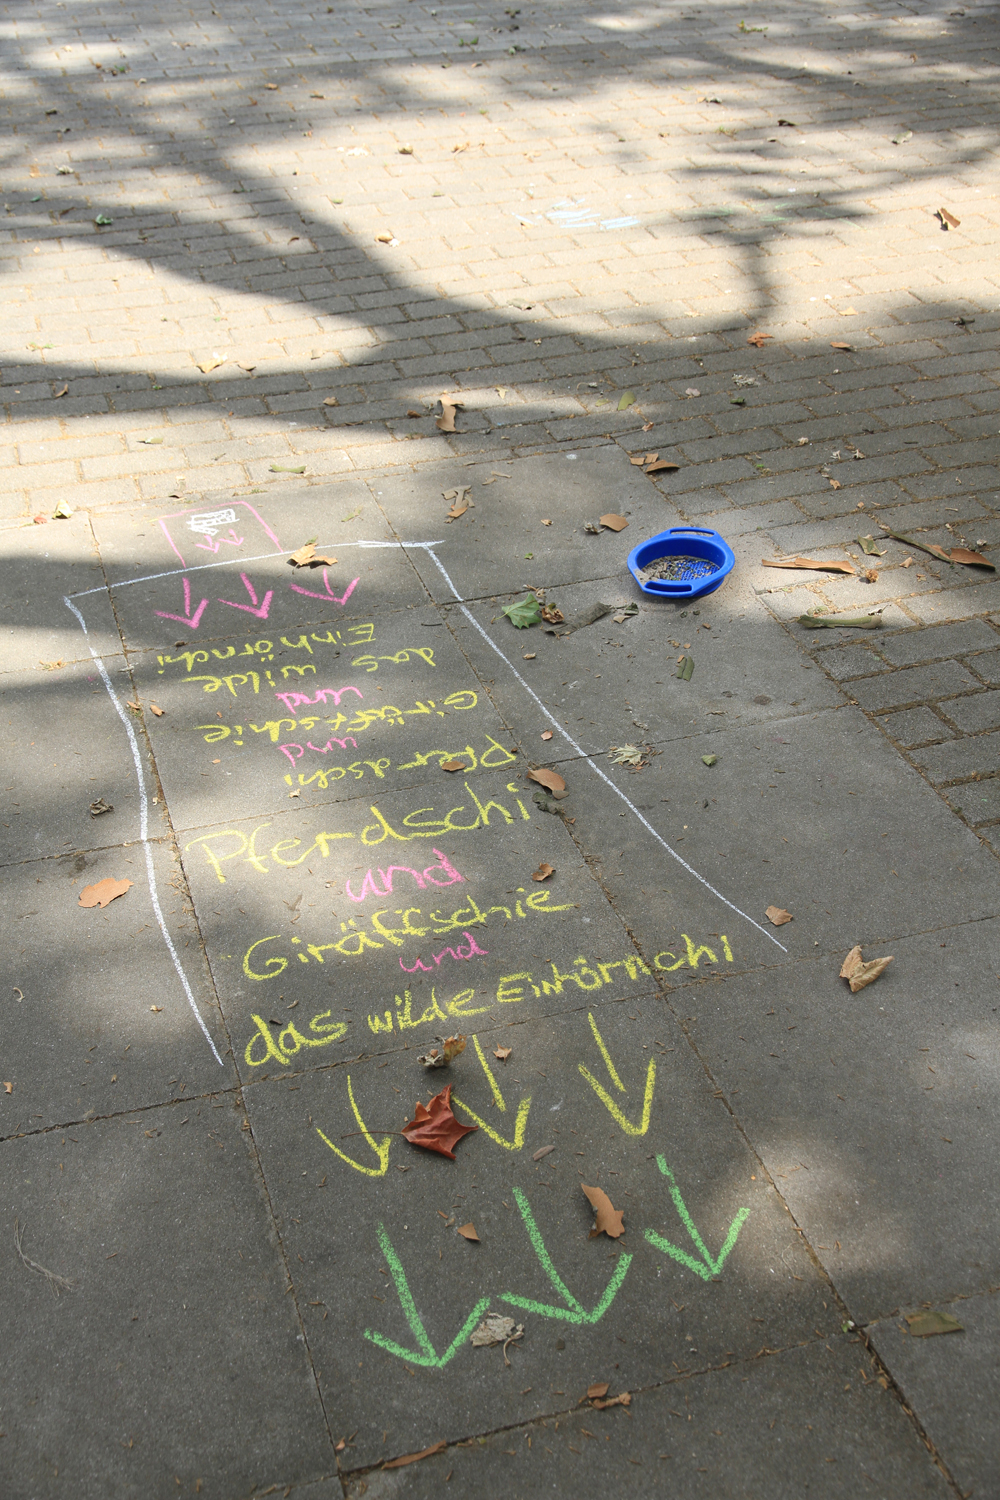 Pferdschi
und
Giräffschie
und
das wilde Einhörnchi
Pferdschi
und
Giräffschie
und
das wilde
Einhörnchi